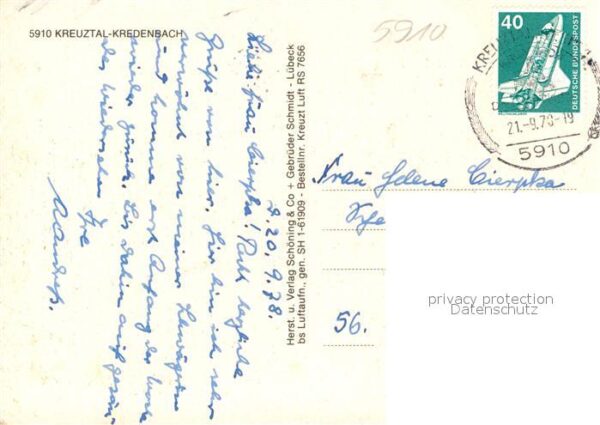 5910 KREUZTAL-KREDENBACH
5910
d. 20. 9. 78.
Liebe Frau Cierpka! Recht herzliche
Grüße von hier. Hier bin ich sehr
verwöhnt von meiner Schwägerin
und komme erst Anfang der Woche
wieder zurück. Bis dahin auf gesun-
des Wiedersehen Ihre
Herst. u. Verlag Schöning & Co + Gebrüder Schmidt - Lübeck
bs Luftaufn., gen. SH 1-61909 - Bestellnr. Kreuzt Luft RS 7656
40
DEUTSCHE BUNDESPOST
21.-9.78-19
5910
Frau Helene Cierpka
56.
privacy protection
Datenschutz